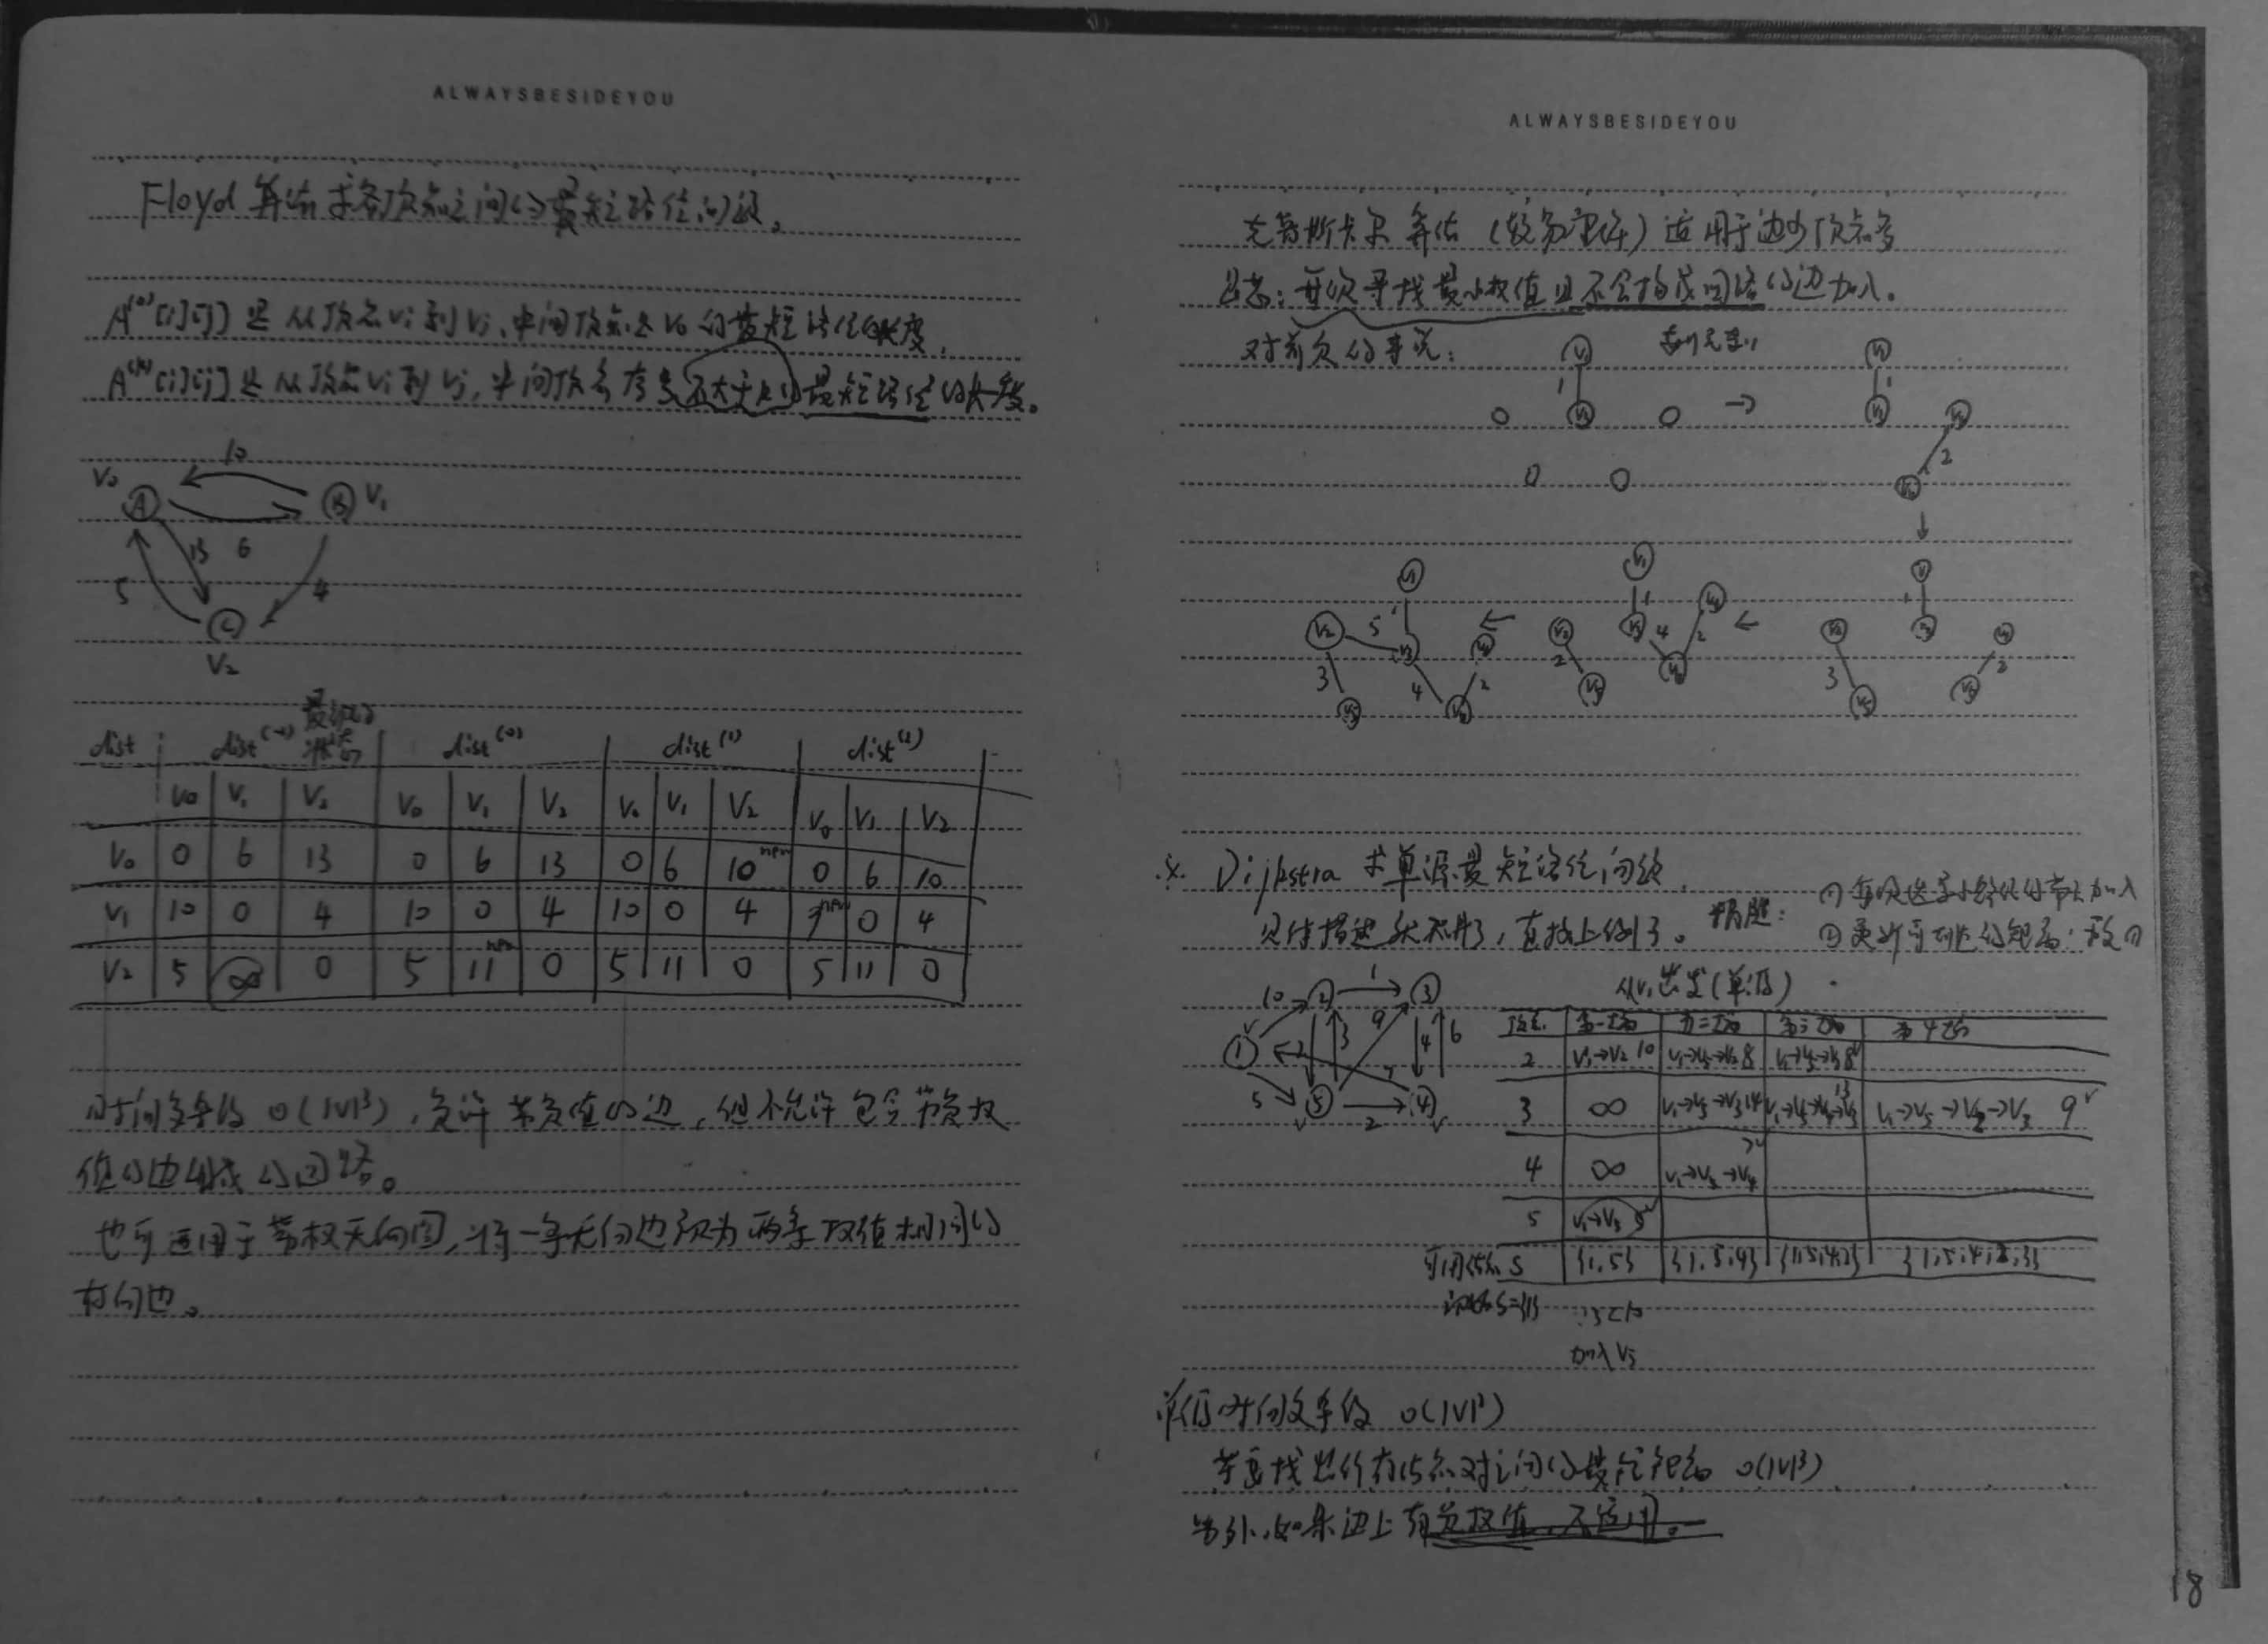 ALWAYSBESIDEYOU
Floyd 算法求各顶点之间的最短路径问题。
A⁽⁰⁾[i][j] 是从顶点Vi到Vj,中间顶点是V0的最短路径的长度,
A⁽ᵏ⁾[i][j] 是从顶点Vi到Vj,中间顶点序号不大于k的最短路径的长度。
V0 A 10 B V1
13 6
5 4
C
V2
dist dist⁽⁻¹⁾ 最初的状态 dist⁽⁰⁾ dist⁽¹⁾ dist⁽²⁾
V0 V1 V2 V0 V1 V2 V0 V1 V2 V0 V1 V2
V0 0 6 13 0 6 13 0 6 10 0 6 10
V1 10 0 4 10 0 4 10 0 4 9 0 4
V2 5 ∞ 0 5 11 0 5 11 0 5 11 0
时间复杂度 O(|V|³),允许带负值的边,但不允许包含带负权
值的边组成的回路。
也可适用于带权无向图,将一条无向边视为两条权值相同的
有向边。
ALWAYSBESIDEYOU
克鲁斯卡尔算法(较易理解)适用于边少顶点多
每次寻找最小权值且不会构成回路的边加入。
对前页的来说:
V1 1 V3 → V1 1 V3 2
↓
V1 1 V2 5 V3 3 4 2 ← V1 1 V2 4 2 2 ← V1 1 V2 3 2
※. Dijkstra 求单源最短路径问题
具体描述就不用了,直接上例子。
从V1出发(单源)
10 2 1 3
1 2 3 9 4 6
5 5 2 4
顶点 第一趟 第二趟 第三趟 第4趟
2 V1→V2 10 V1→V5→V2 8 V1→V5→V2 8
3 ∞ V1→V5→V3 14 V1→V5→V4→V3 13 V1→V5→V2→V3 9
4 ∞ V1→V5→V4 7
5 V1→V5 5
S {1,5} {1,5,4} {1,5,4,2} {1,5,4,2,3}
初始S={1}
加入V5
单源时间复杂度 O(|V|²)
若要找出所有结点对之间的最短距离 O(|V|³)
另外,如果边上有负权值,不适用。
18